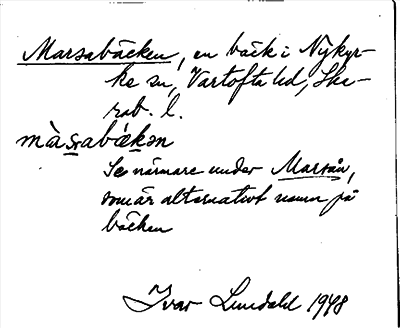 Marsabäcken, en bäck i Nykyr-
ke sn, Vartofta hd, Ska-
rab. l.
màs̱abǽḵən
Se närmare under Marsån,
som är alternativt namn på
bäcken
Ivar Lundahl 1948